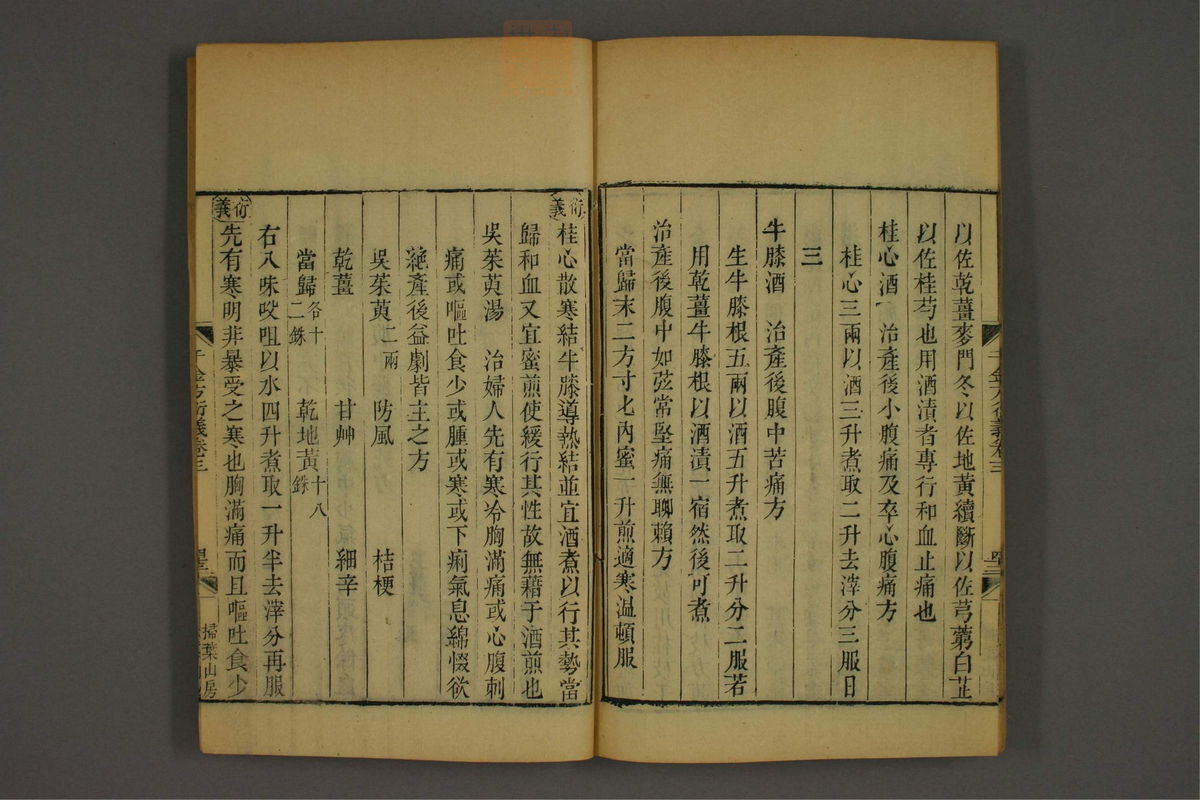 以佐乾薑麥門冬以佐地黃續斷以佐芎藭白芷
以佐桂芍也用酒漬者專行和血止痛也
桂心酒 治產後小腹痛及卒心腹痛方
桂心三兩以酒三升煮取二升去滓分三服日
三
牛膝酒 治產後腹中苦痛方
生牛膝根五兩以酒五升煮取二升分二服若
用乾薑牛膝根以酒漬一宿然後可煮
治產後腹中如弦常堅痛無聊賴方
當歸末二方寸匕內蜜一升煎適寒溫頓服
衍義 桂心散寒結牛膝導熱結並宜酒煮以行其勢當
歸和血又宜蜜煎使緩行其性故無藉于酒煎也
吳茱萸湯 治婦人先有寒冷胸滿痛或心腹刺
痛或嘔吐食少或腫或寒或下痢氣息綿惙欲
絕產後益劇皆主之方
吳茱萸二兩 防風 桔梗
乾薑 甘艸 細辛
當歸各十二銖 乾地黃十八銖
右八味㕮咀以水四升煮取一升半去滓分再服
衍義 先有寒明非暴受之寒也胸滿痛而且嘔吐食少
千金方衍義卷三
掃葉山房